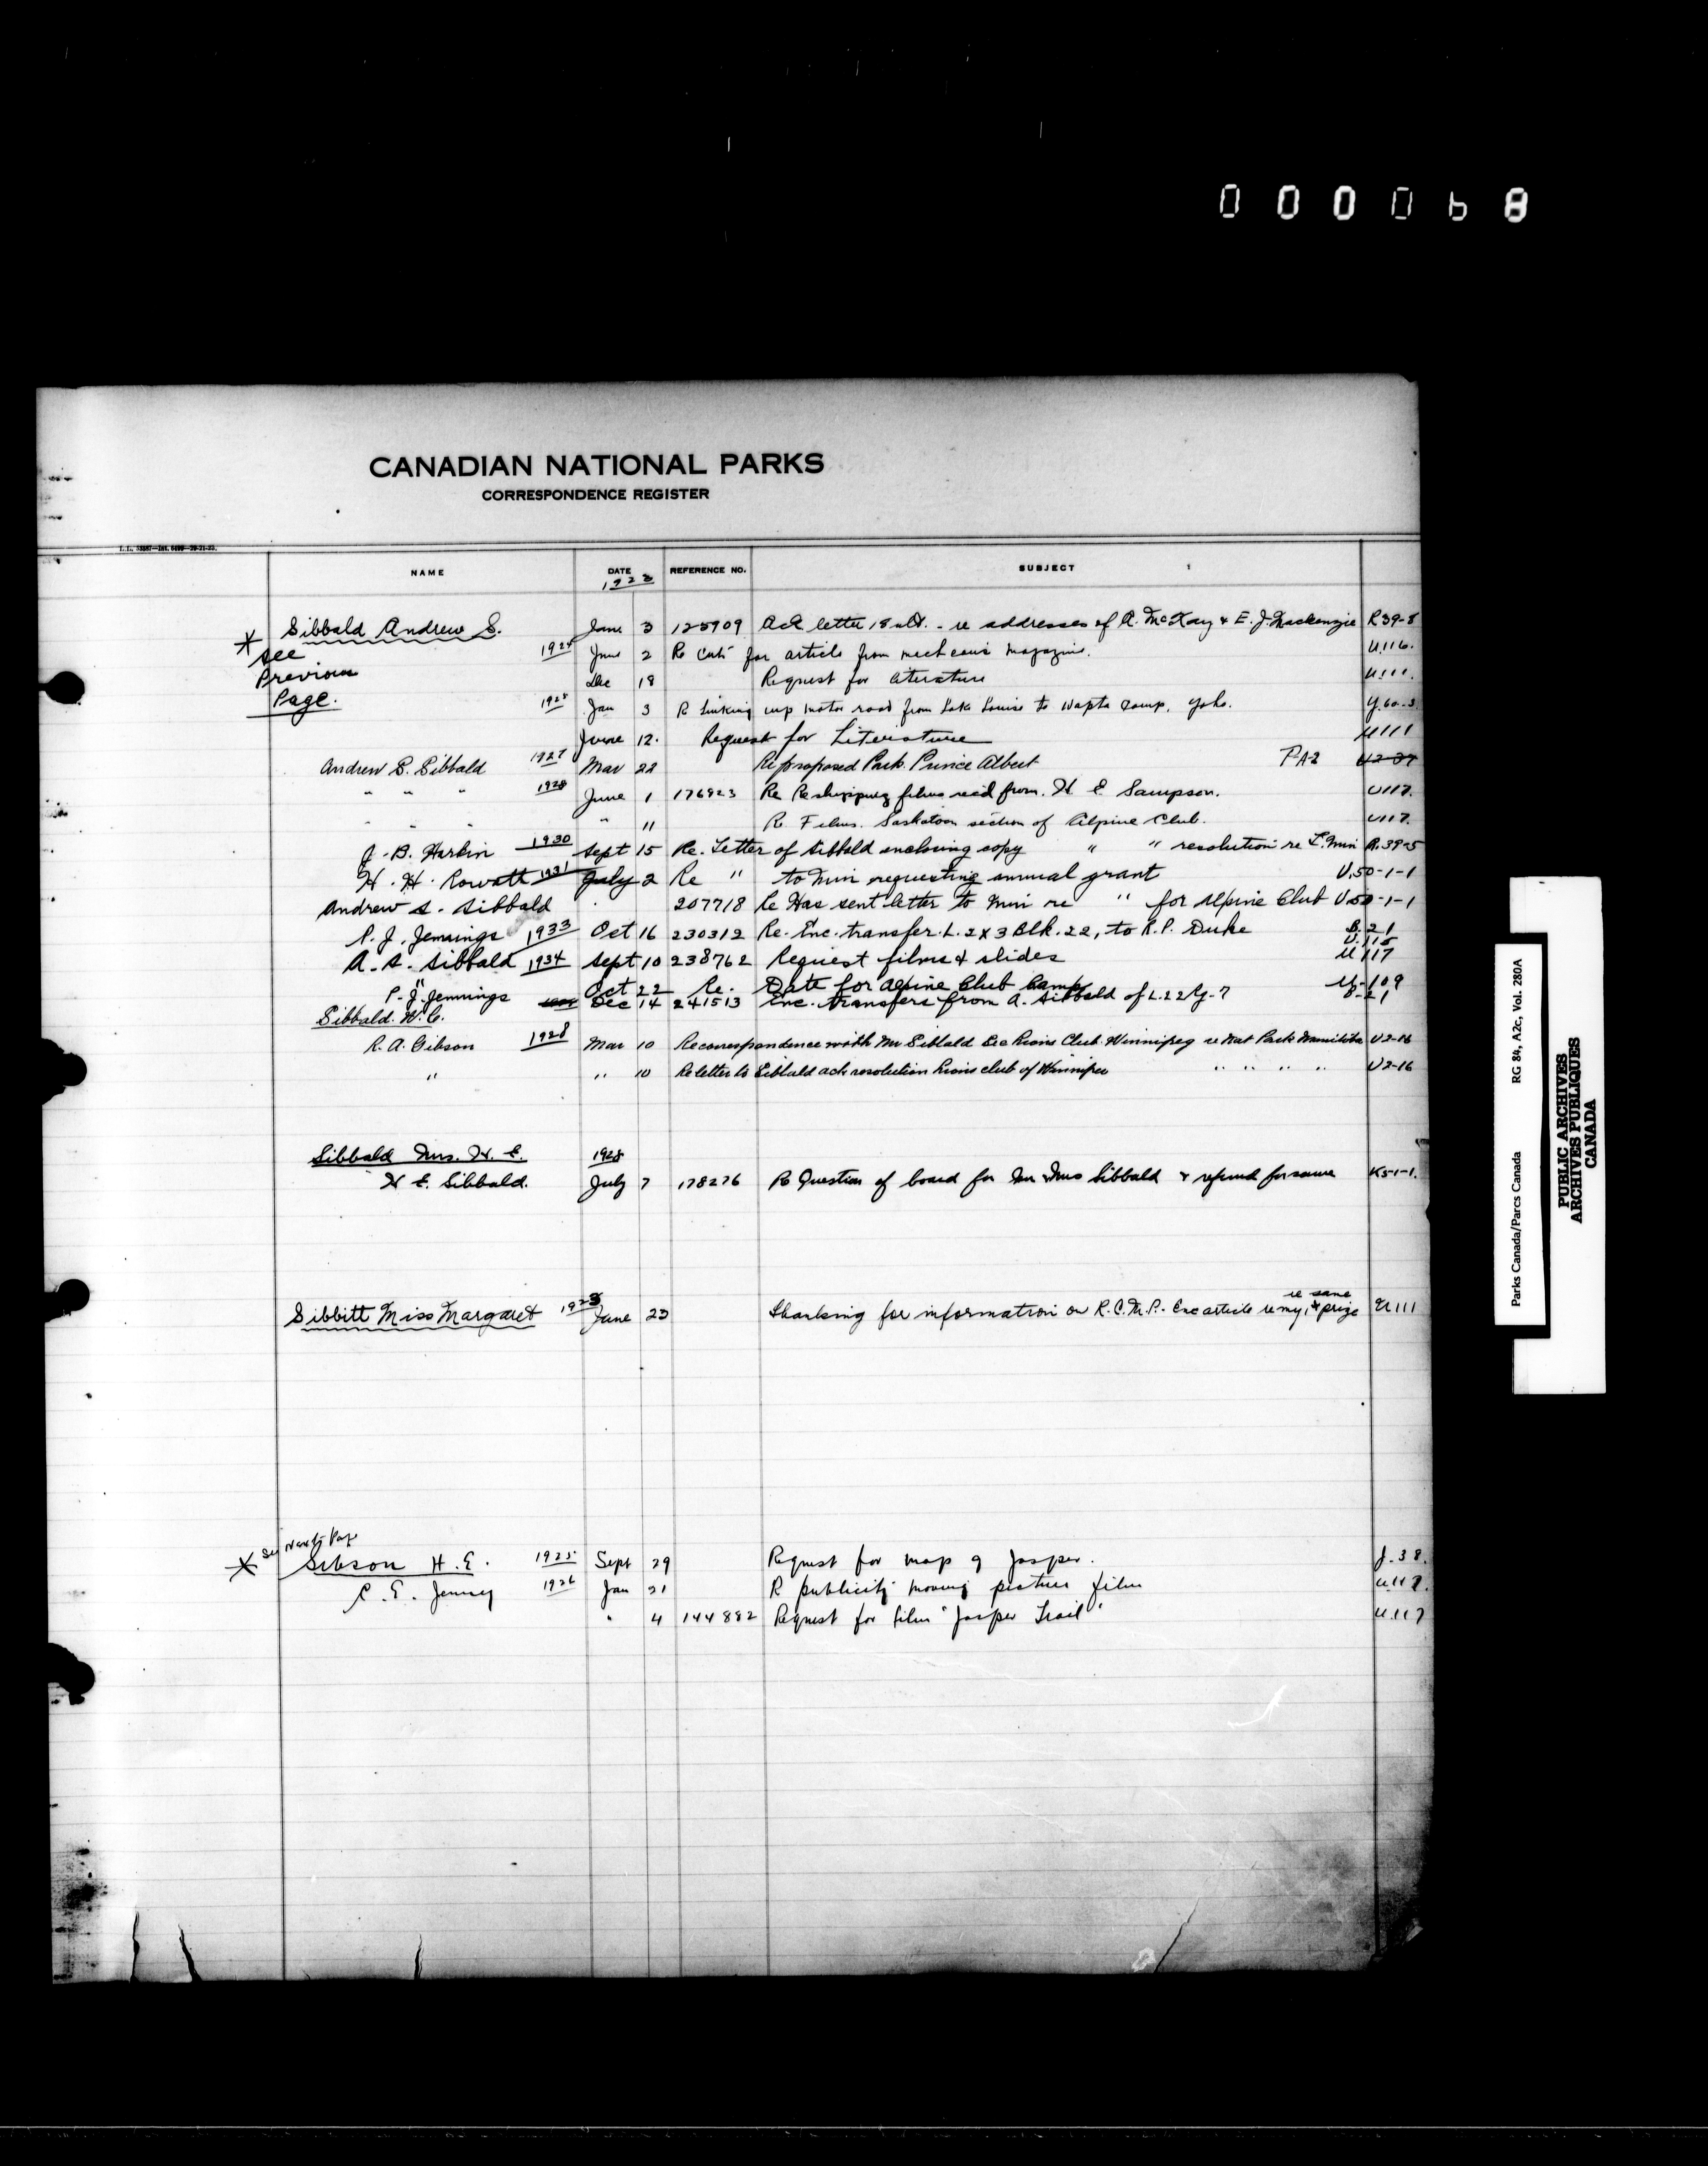 000068
CANADIAN NATIONAL PARKS
CORRESPONDENCE REGISTER
NAME DATE REFERENCE NO. SUBJECT
1923
Sibbald Andrew S. June 3 125909 Ack letter 18 ult. - re addresses of A. McKay & E. J. Mackenzie R39-8
* See
Previous
Page.
June 2 Re Cuts for article from mechanics magazine. U.116.
Dec 18 Request for literature U.111.
Jan 3 R linking up motor road from Lake Louise to Wapta Camp, Yoho. Y.60-3
June 12. Request for Literature U111
Andrew S. Sibbald 1927 Mar 22 Re proposed Park Prince Albert PA2 U2-37
" " " 1928 June 1 176923 Re Reshipping films recd from. H E Sampson. U117.
" " " " 11 Re Films. Saskatoon section of Alpine Club. U117.
J. B. Harkin 1930 Sept 15 Re. Letter of Sibbald enclosing copy " " resolution re R.39-5
H. H. Rowatt 1931 July 2 Re " to Min requesting annual grant U.50-1-1
Andrew S. Sibbald 207718 Re Has sent letter to Min re " for Alpine Club U50-1-1
P. J. Jennings 1933 Oct 16 230312 Re. Enc. transfer. L. 2 & 3 Blk. 22, to R. P. Duke B.21
U.115
A. S. Sibbald 1934 Sept 10 238762 Request films & slides U 117
" Oct 22 Re. Date for Alpine Club Camp U-109
P. J. Jennings Dec 14 241513 Enc. transfers from A. Sibbald of L. 22 B-21
Sibbald. W. C.
R. A. Gibson 1928 Mar 10 Re correspondence with Mr Sibbald Sec Kions Club Winnipeg re Nat Park Manitoba U2-16
" " 10 Re letter to Sibbald ack resolution Kions club of Winnipeg " " " " U2-16
Sibbald Mrs. H. E. 1928
H E. Sibbald. July 7 178276 Re Question of board for Mr & Mrs Sibbald & refund for same K5-1-1.
re same
Sibbitt Miss Margaret 1923 June 23 Thanking for information on R.C.M.P.- Enc article re my, & prize U111
See Next Page
* Sibson H. E. 1925 Sept 29 Request for map of Jasper. J.38.
C. E. Jenney 1926 Jan 21 R publicity moving picture film U.117.
" 4 144882 Request for film "Jasper Trail" U.117
Parks Canada/Parcs Canada RG 84, A2c, Vol. 280A
PUBLIC ARCHIVES
ARCHIVES PUBLIQUES
CANADA